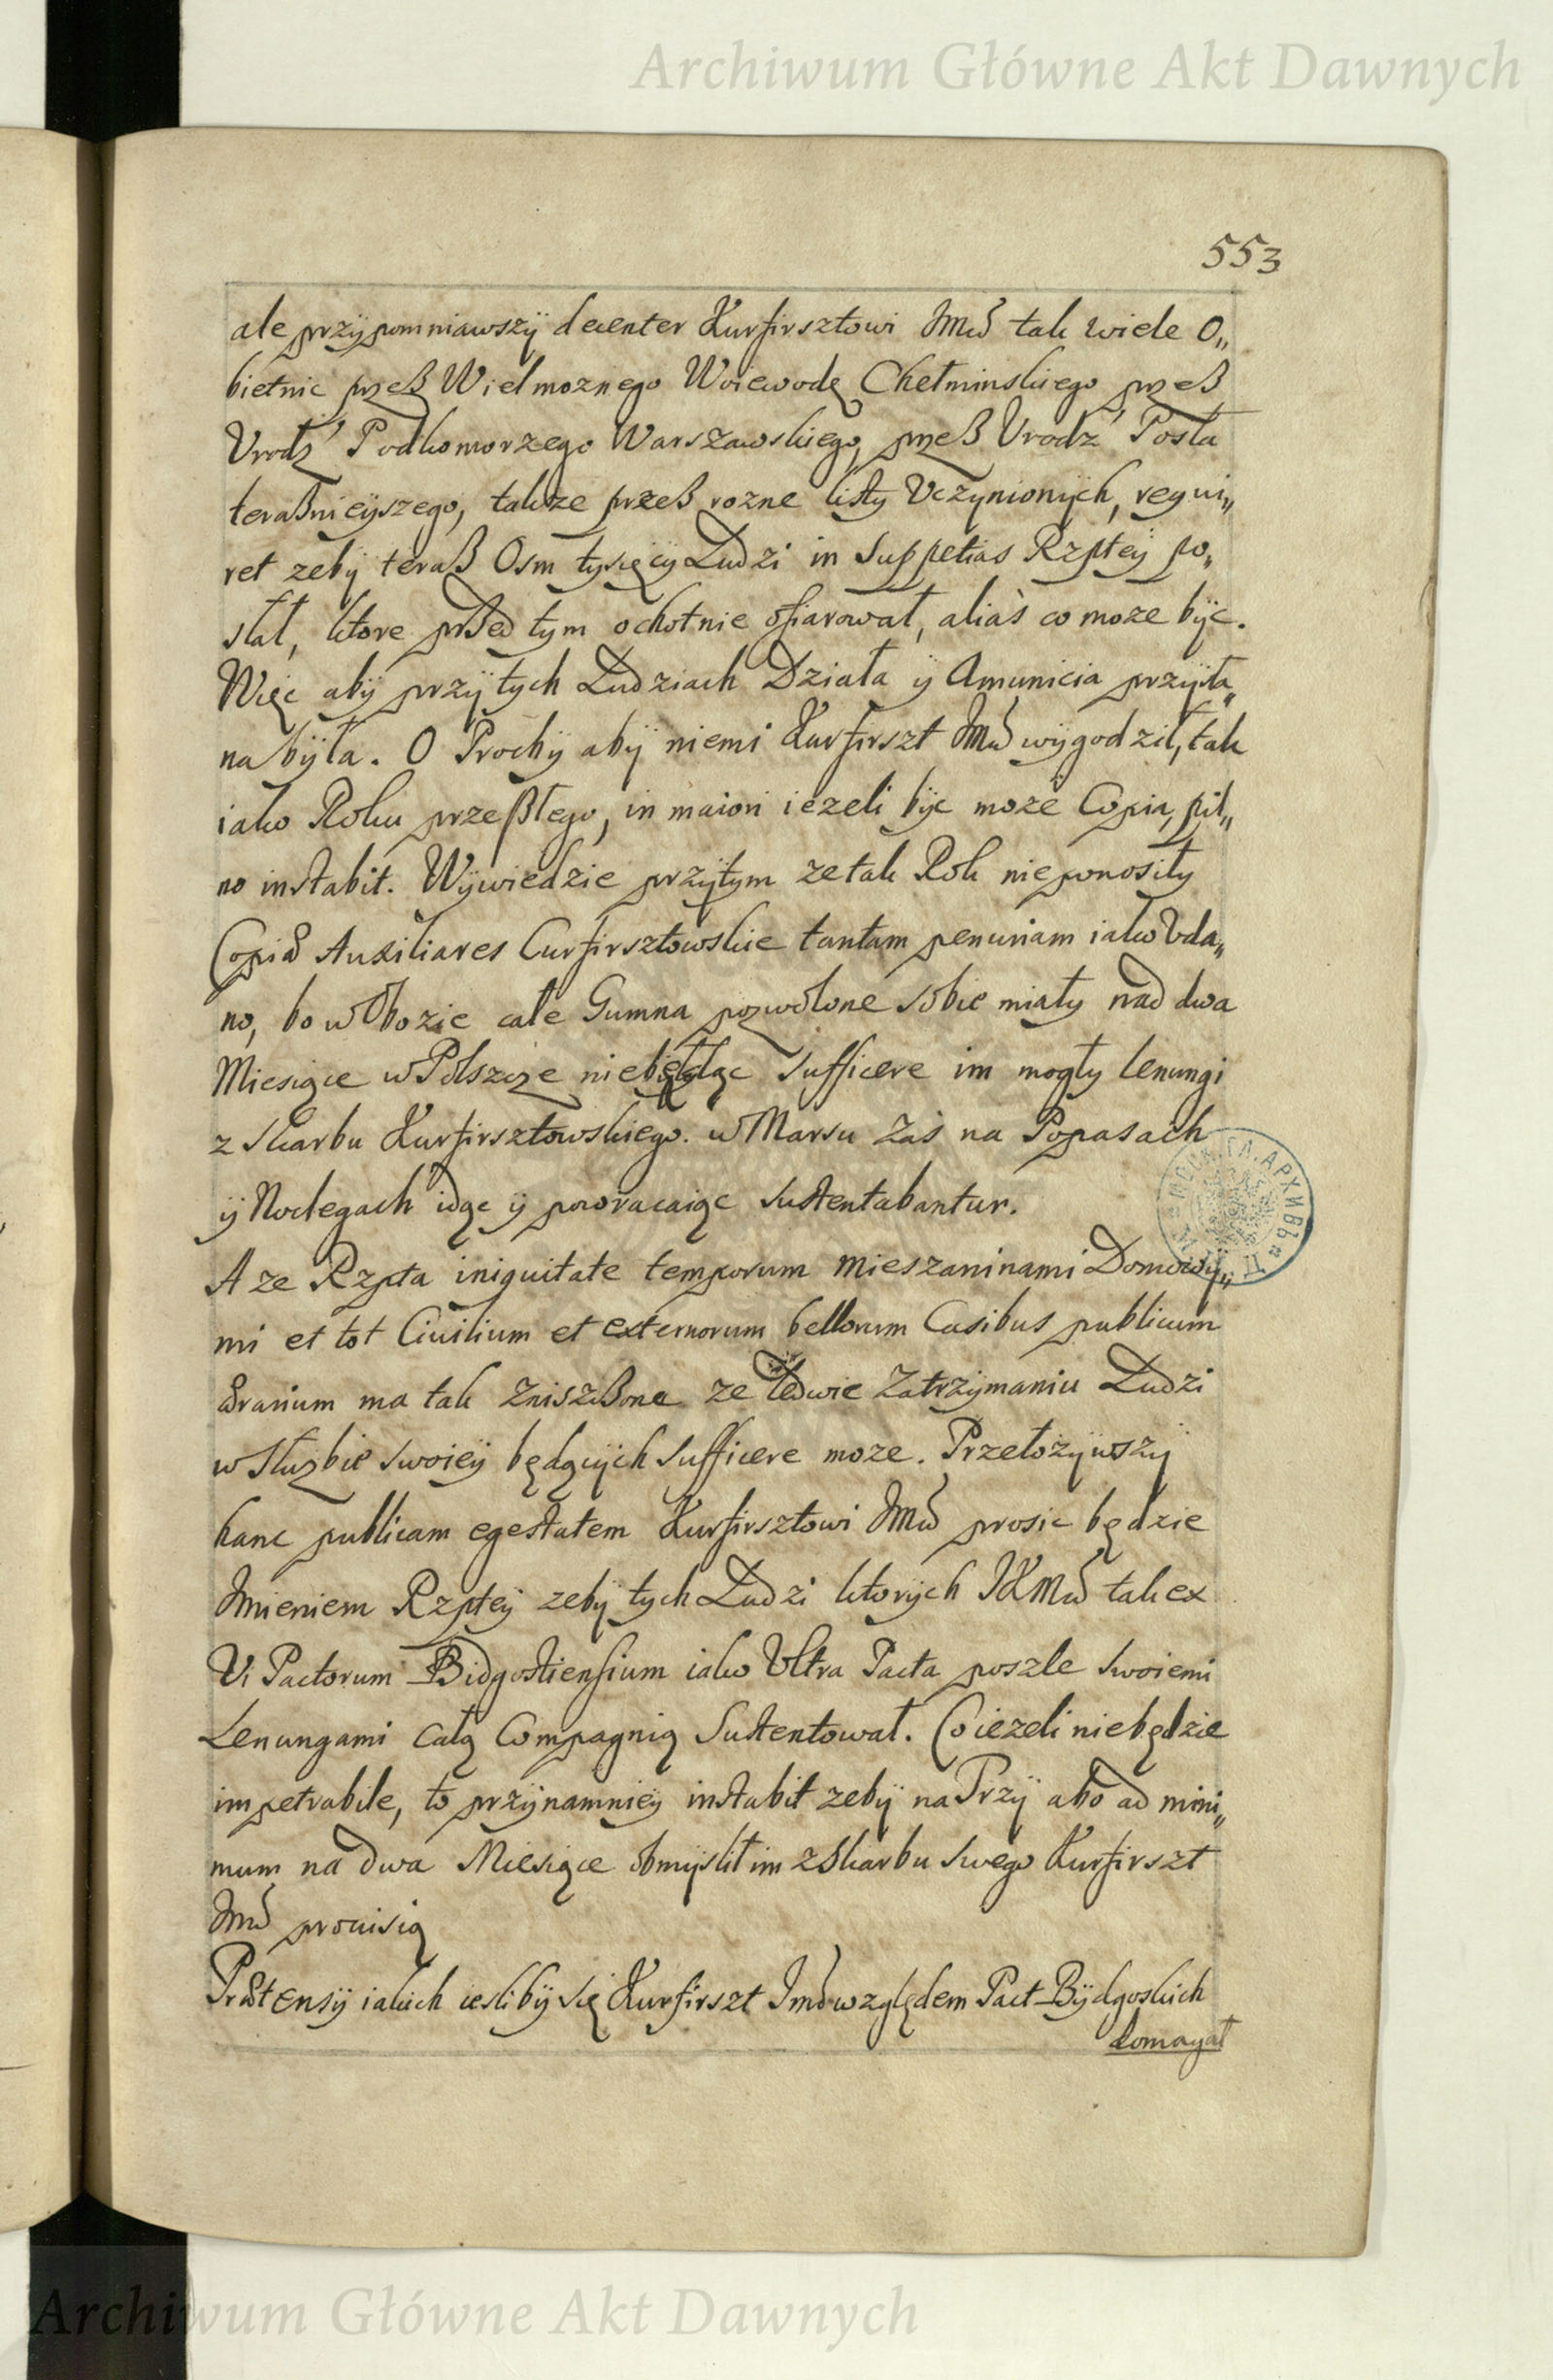 Archiwum Główne Akt Dawnych
553
ale przÿpomniawszÿ decenter Kurfirsztowi Jmć tak wiele O„
bietnic przeß Wielmoznego Woiewodę Chełminskiego przeß
Vrodź Podkomorzego Warszawskiego, przeß Vrodź Posła
teraßnieÿszego, takze przeß rozne listy Vczynionÿch, requi„
ret zebÿ teraß Osm tysięcy Ludzi in Suppetias Rzpteÿ po„
słał, ktore przed tym ochotnie ofiarował, aliàs co moze bÿc.
Więc abÿ przÿ tych Ludziach Działa ÿ Amunicia przÿsła„
na bÿła. O Prochÿ abÿ niemi Kurfirszt Jmć wÿgodził, tak
iako Roku przeßłego, in maiori iezeli bÿc moze Copia, pil„
no instabit. Wÿwiedzie przÿtym ze tak Rok nieponosiły
Copiæ Auxiliares Curfirsztowskie tantam penuriam iako Vda„
no, bo w Obozie całe Gumna pozwolone sobie miały nad dwa
Miesiące w Polszcze niebędąc sufficere im mogły lenungi
z Skarbu Kurfirsztowskiego. w Marsu Zaś na Popasach
ÿ Noclegach idąc ÿ powracaiąc sustentabantur.
A ze Rzpta iniquitate temporum mieszaninami Domowÿ„
mi et tot Ciuilium et externorum bellorum Casibus publicum
ærarium ma tak Zniszczone ze ledwie Zatrzÿmaniu Ludzi
w służbie swoieÿ będącÿch sufficere moze. Przełożÿwszÿ
hanc publicam egestatem Kurfirsztowi Jmć prosic będzie
Jmieniem Rzpteÿ zebÿ tych Ludzi ktorÿch JKMć tak ex
Vi Pactorum Bidgostiensium iako Vltra Pacta poszle swoiemi
Lenungami całą Compagnią Sustentował. Co iezeli niebędzie
impetrabile, to przÿnamnieÿ instabit zebÿ na Trzÿ abo ad mini„
mum na dwa Miesiące obmÿslił im z Skarbu swego Kurfirszt
Jmć prouisią
Prætensÿ iakich iesli bÿ się Kurfirszt Jmć względem Pact Bÿdgoskich
domagał
Archiwum Główne Akt Dawnych